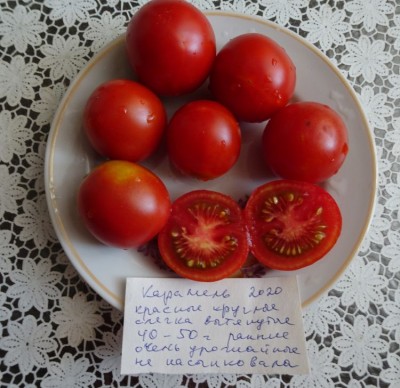 Карамель 2020
красные круглые
слегка вытянутые
40-50 г ранние
очень урожайные
не пасынковала